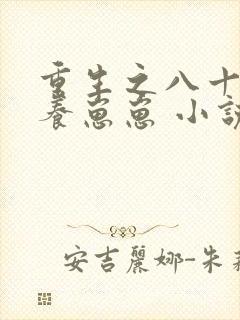 重生之八十
養崽崽 小說
安吉麗娜-朱莉